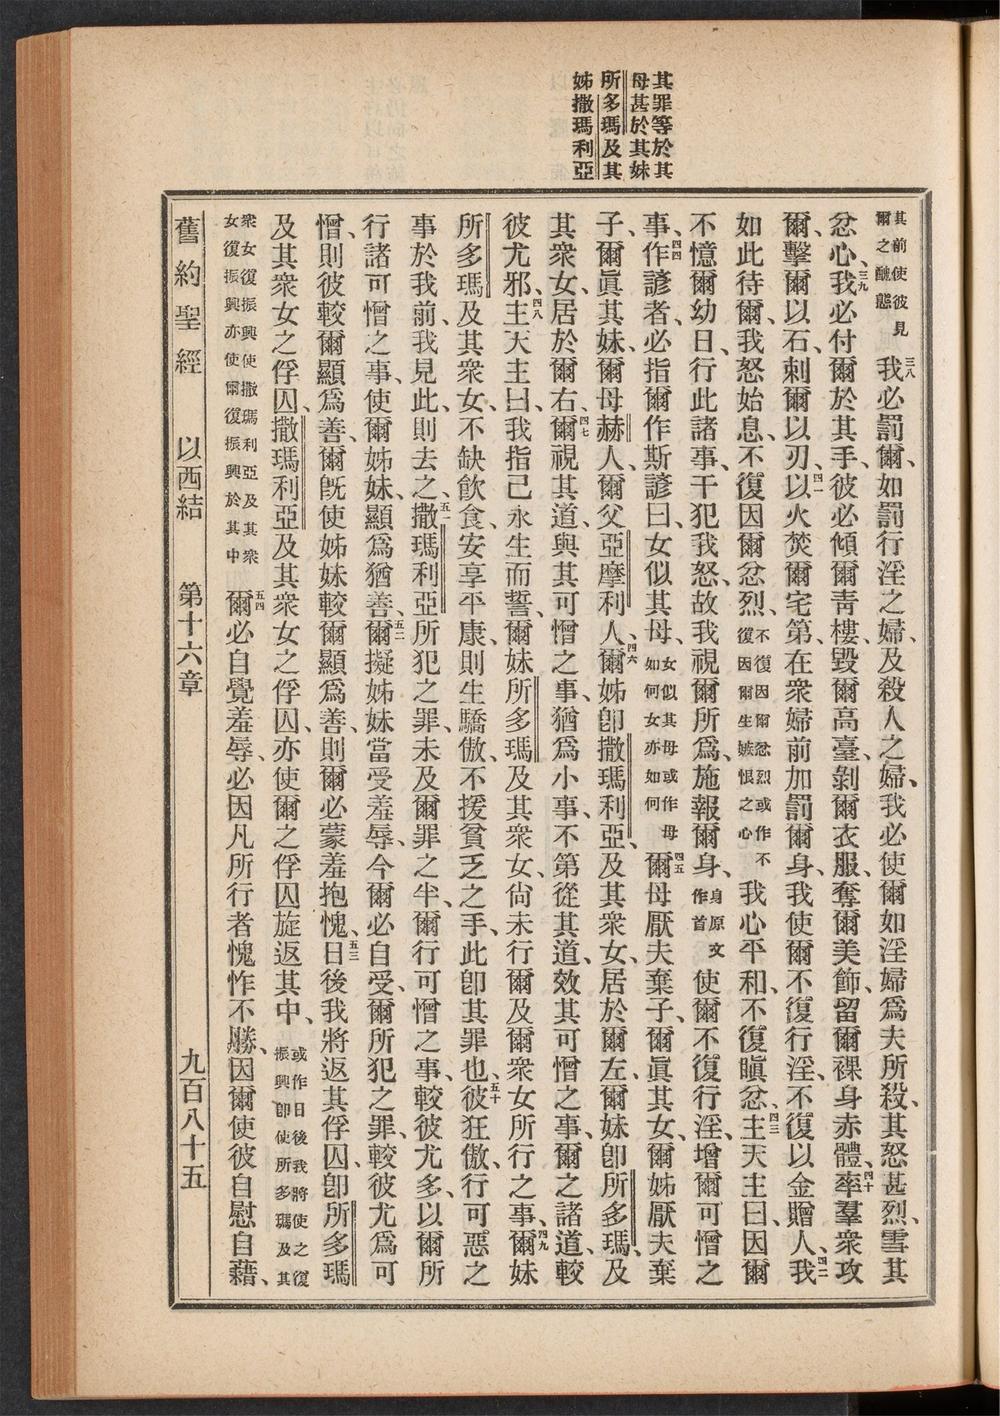 其罪等於其
母甚於其妹
所多瑪及其
姊撒瑪利亞
其前使彼見爾之醜態 三八我必罰爾、如罰行淫之婦、及殺人之婦、我必使爾如淫婦爲夫所殺、其怒甚烈、雪其
忿心、三九我必付爾於其手、彼必傾爾靑樓、毀爾高臺、剝爾衣服、奪爾美飾、留爾裸身赤體、四十率羣衆攻
爾、擊爾以石、刺爾以刃、四一以火焚爾宅第、在衆婦前加罰爾身、我使爾不復行淫、不復以金贈人、四二我
如此待爾、我怒始息、不復因爾忿烈、不復因爾忿烈或作不復因爾生嫉恨之心 我心平和、不復瞋忿、四三主天主曰、因爾
不憶爾幼日、行此諸事、干犯我怒、故我視爾所爲、施報爾身、身原文作首 使爾不復行淫、增爾可憎之
事、四四作諺者、必指爾作斯諺曰、女似其母、女似其母或作母如何女亦如何 四五爾母厭夫棄子、爾眞其女、爾姊厭夫棄
子、爾眞其妹、爾母赫人、爾父亞摩利人、四六爾姊卽撒瑪利亞、及其衆女、居於爾左、爾妹卽所多瑪、及
其衆女、居於爾右、四七爾視其道、與其可憎之事、猶爲小事、不第從其道、效其可憎之事、爾之諸道、較
彼尤邪、四八主天主曰、我指己永生而誓、爾妹所多瑪及其衆女、尙未行爾及爾衆女所行之事、四九爾妹
所多瑪及其衆女、不缺飲食、安享平康、則生驕傲、不援貧乏之手、此卽其罪也、五十彼狂傲、行可惡之
事於我前、我見此、則去之、五一撒瑪利亞所犯之罪、未及爾罪之半、爾行可憎之事、較彼尤多、以爾所
行諸可憎之事、使爾姊妹、顯爲猶善、五二爾擬姊妹當受羞辱、今爾必自受、爾所犯之罪、較彼尤爲可
憎、則彼較爾顯爲善、爾旣使姊妹較爾顯爲善、則爾必蒙羞抱愧、五三日後我將返其俘囚、卽所多瑪
及其衆女之俘囚、撒瑪利亞及其衆女之俘囚、亦使爾之俘囚旋返其中、或作日後我將使之復振興卽使所多瑪及其
衆女復振興使撒瑪利亞及其衆女復振興亦使爾復振興於其中 五四爾必自覺羞辱、必因凡所行者愧怍不勝、因爾使彼自慰自藉、
舊約聖經 以西結 第十六章 九百八十五